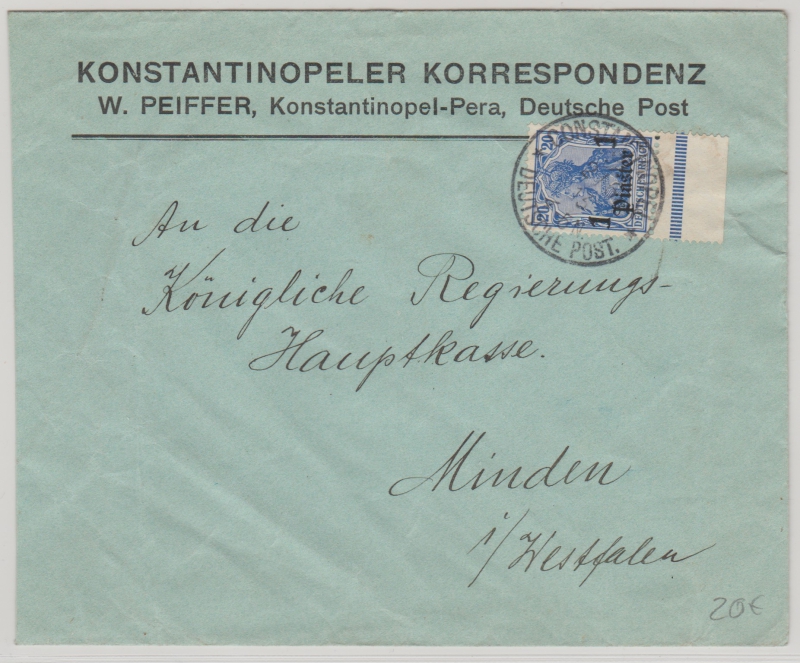 KONSTANTINOPELER KORRESPONDENZ
W. PEIFFER, Konstantinopel-Pera, Deutsche Post
20 20
1 Piaster 1
DEUTSCHES REICH
DEUTSCHE POST.
An die
Königliche Regierungs-
Hauptkasse.
Minden
i/Westfalen
20€